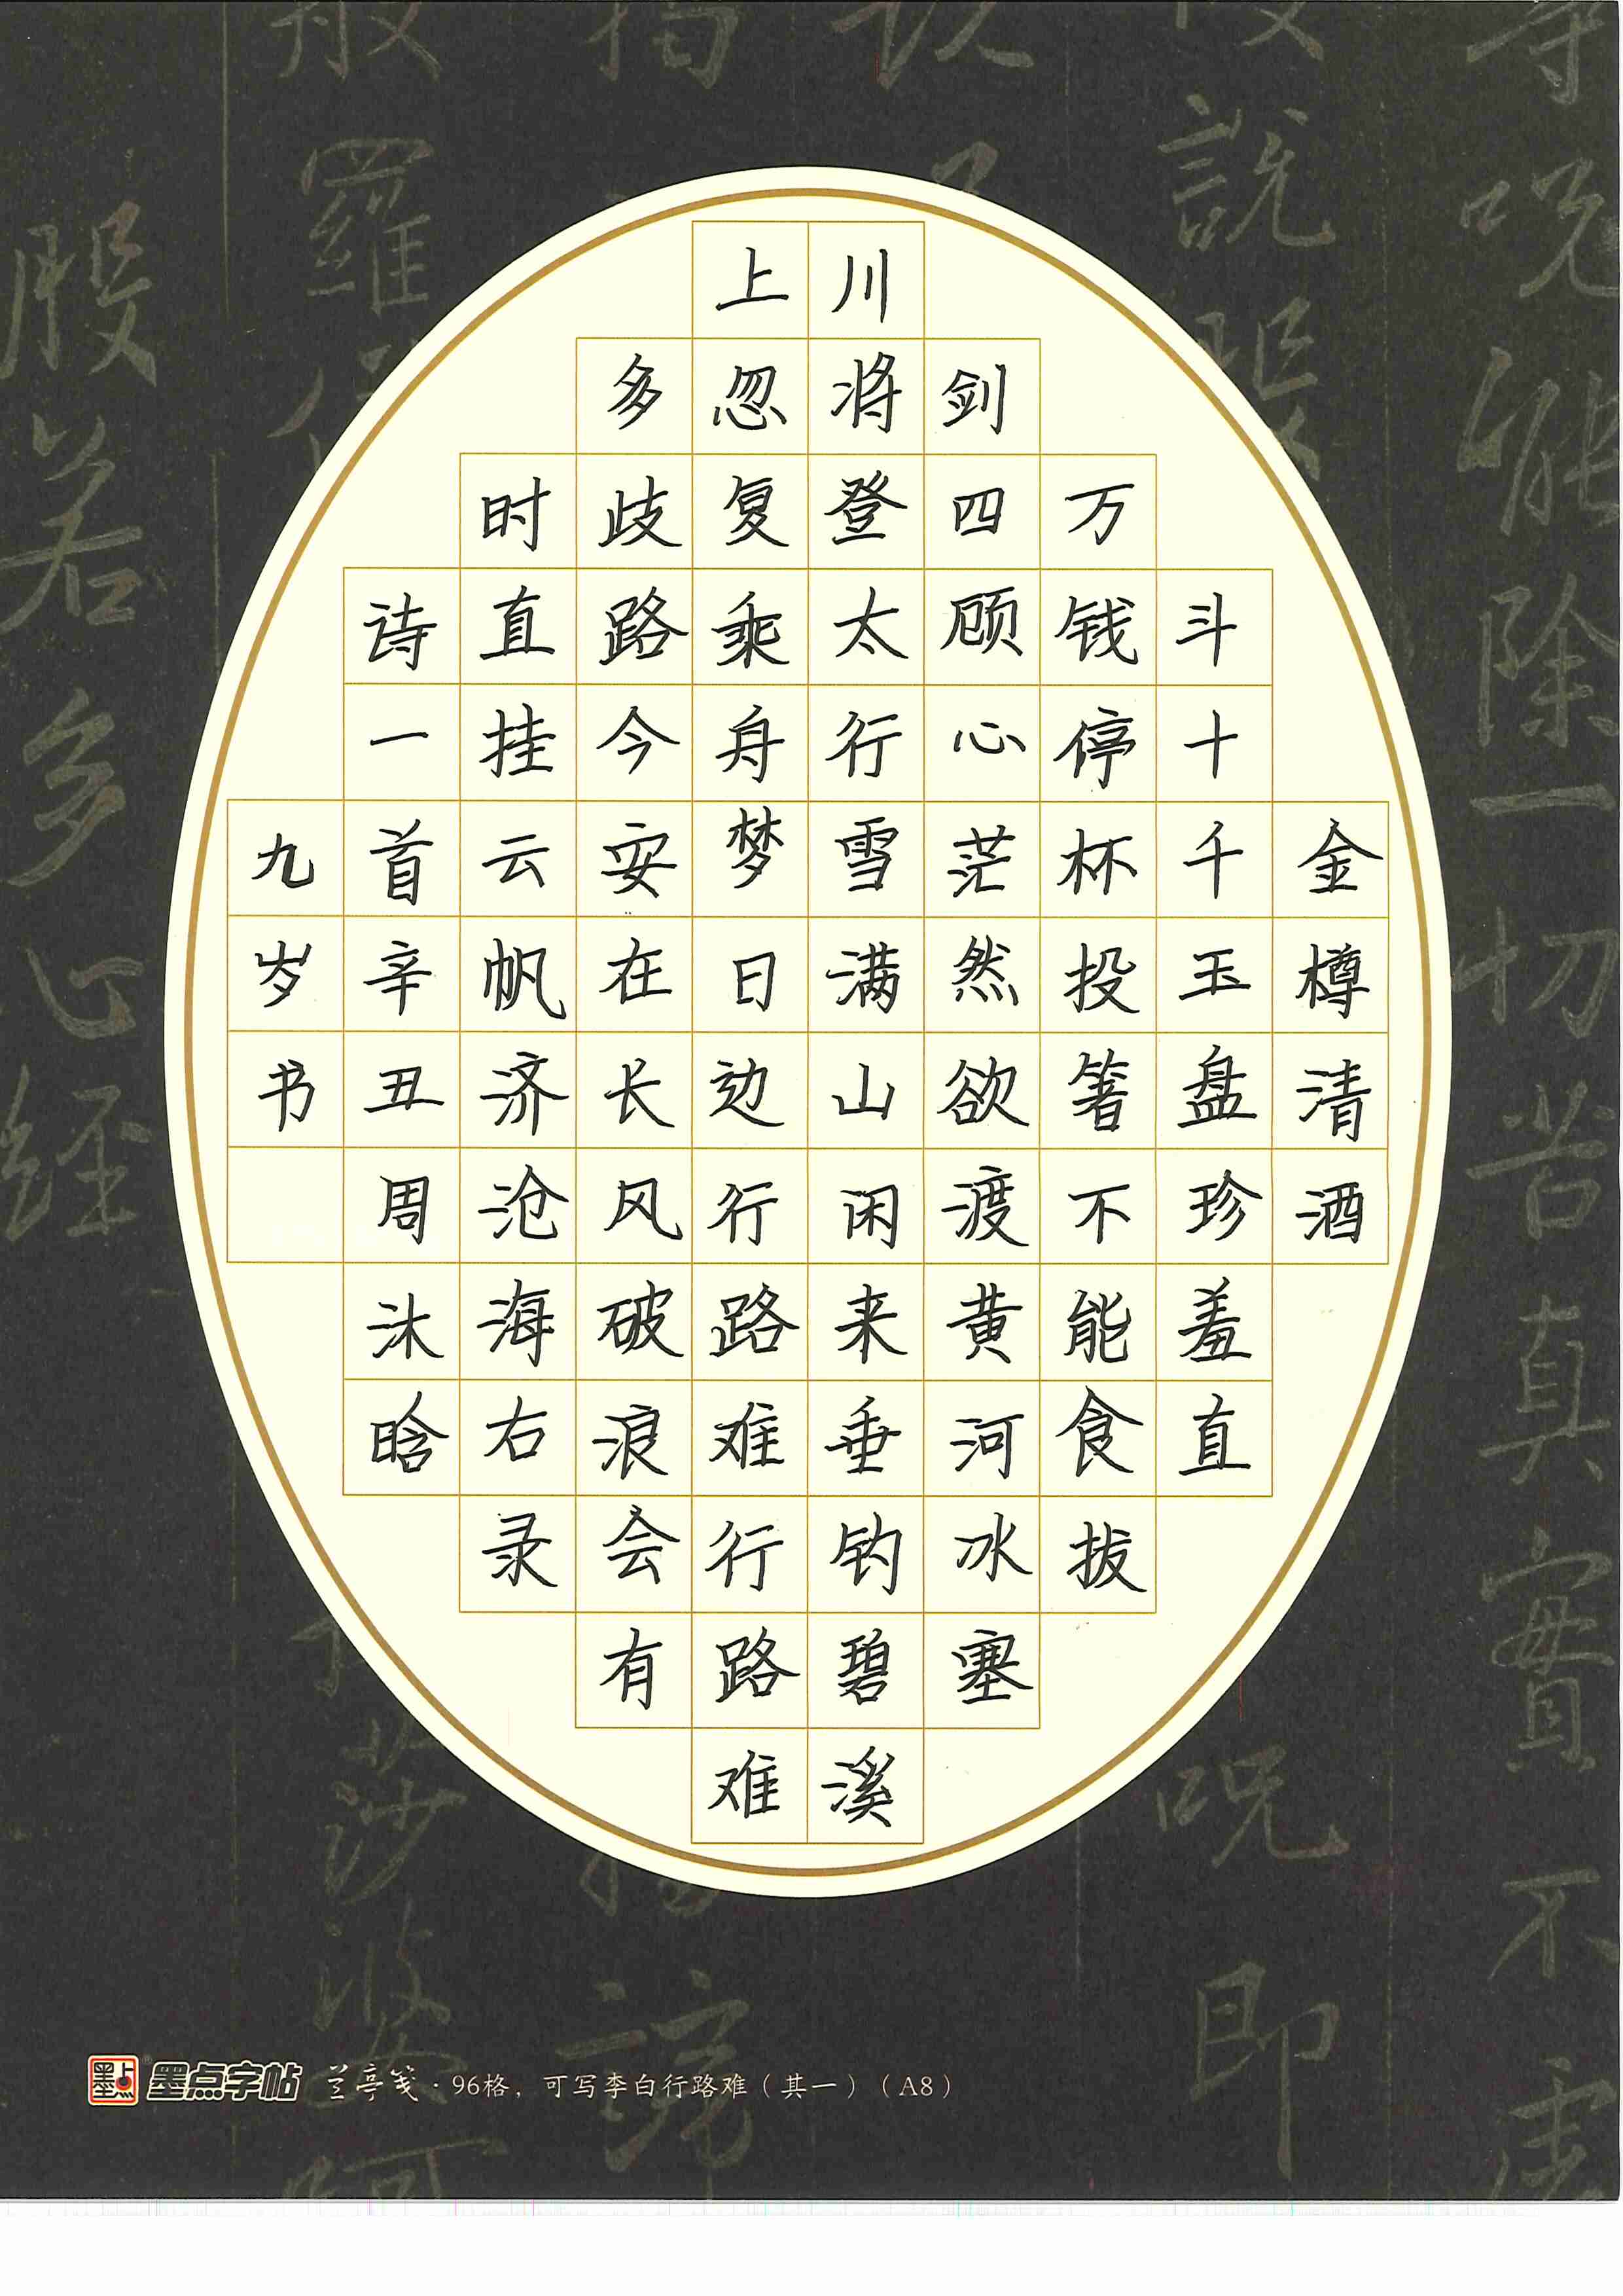 金樽清酒
斗十千玉盘珍羞直
万钱停杯投箸不能食拔
剑四顾心茫然欲渡黄河冰塞
川将登太行雪满山闲来垂钓碧溪
上忽复乘舟梦日边行路难行路难
多歧路今安在长风破浪会有
时直挂云帆济沧海右录
诗一首辛丑周沐晗
九岁书
墨点字帖 兰亭笺·96格，可写李白行路难（其一）（A8）